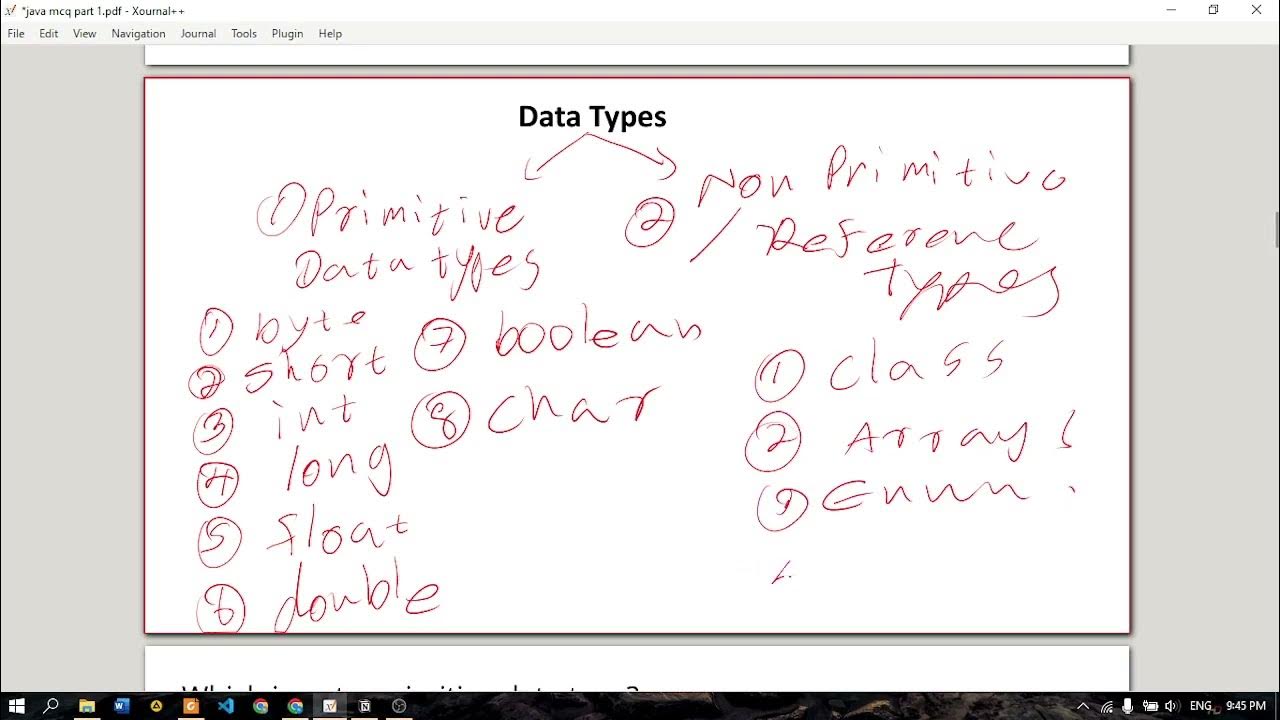 *java mcq part 1.pdf - Xournal++
File Edit View Navigation Journal Tools Plugin Help
Data Types
① Primitive
Data types
② Non Primitive
/ Reference
Types
① byte
② short
③ int
④ long
⑤ float
⑥ double
⑦ boolean
⑧ char
① class
② Arrays
③ Enum
ENG
9:45 PM